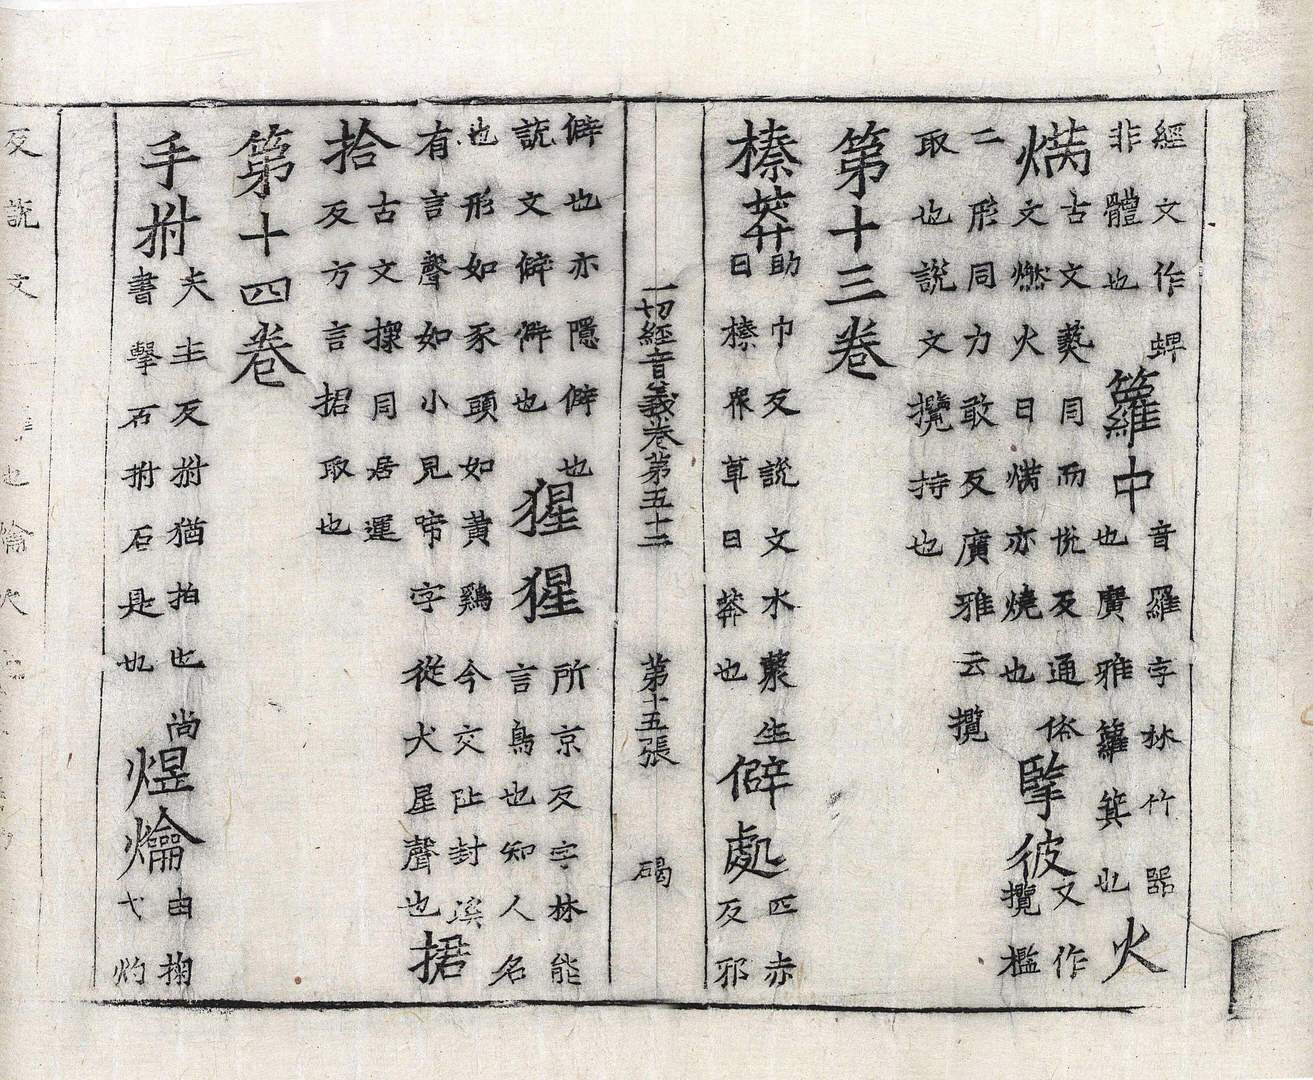 經文作蜱
非體也
籮中
音羅字林竹器
也廣雅籮箕也
火
焫
古文爇同而悅反通俗
文燃火曰焫亦燒也
擥彼
文作
攬檻
二形同力敢反廣雅云攬
取也説文攬持也
第十三卷
榛莽
助巾反説文水藂生
曰榛衆草曰莽也
僻處
匹赤
反邪
一切經音義卷第五十二 第十五張 碣
僻也亦隱僻也
説文僻僻也
猩猩
所京反字林能
言鳥也知人名
也形如豕頭如黃鷄今交阯封溪
有言聲如小兒啼字從犬星聲也
捃
拾
古文攈同居運
反方言捃取也
第十四卷
手拊
夫主反拊猶拍也尚
書擊石拊石是也
煜爚
由掬
弋灼
反説文